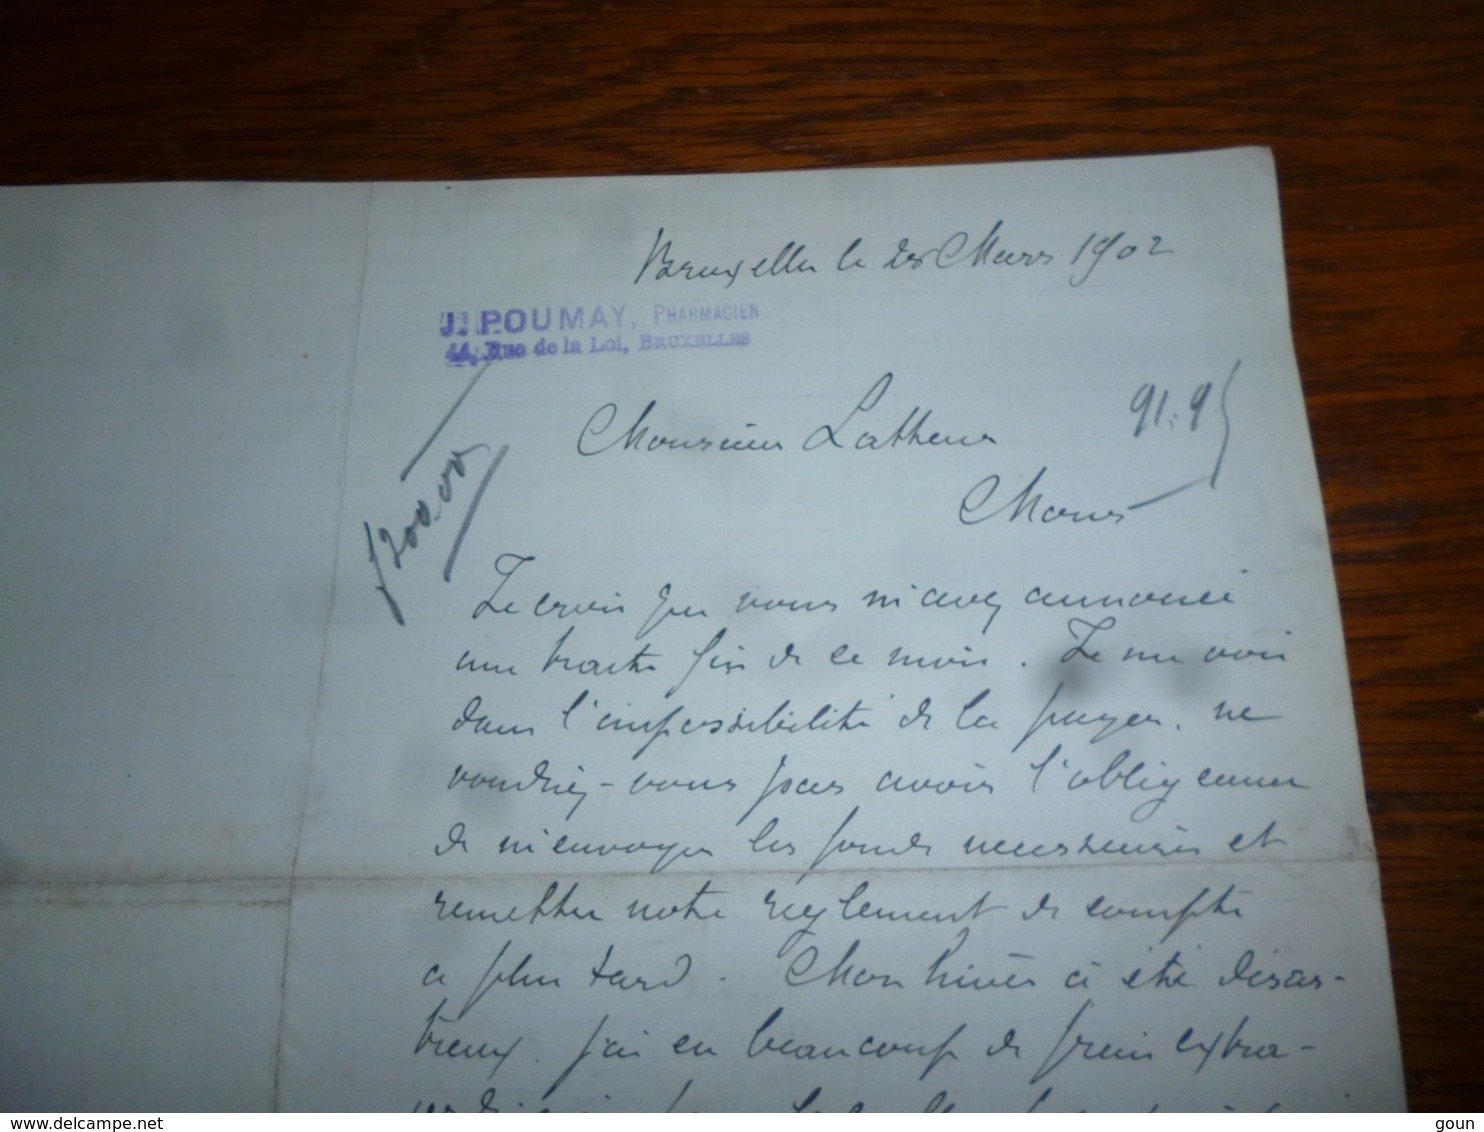 Bruxelles le 28 Mars 1902
J. POUMAY, PHARMACIEN
44, Rue de la Loi, BRUXELLES
91.9
Monsieur
Mons
200.00
Je crois que vous m'avez annoncé
une traite fin de ce mois. Je me vois
dans l'impossibilité de la payer. ne
voudriez-vous pas avoir l'obligeance
de m'envoyer les fonds necessaires et
remettre notre reglement de compte
a plus tard. Mon hiver a été désas-
treux. j'ai eu beaucoup de frais extra-
www.delcampe.net
goun